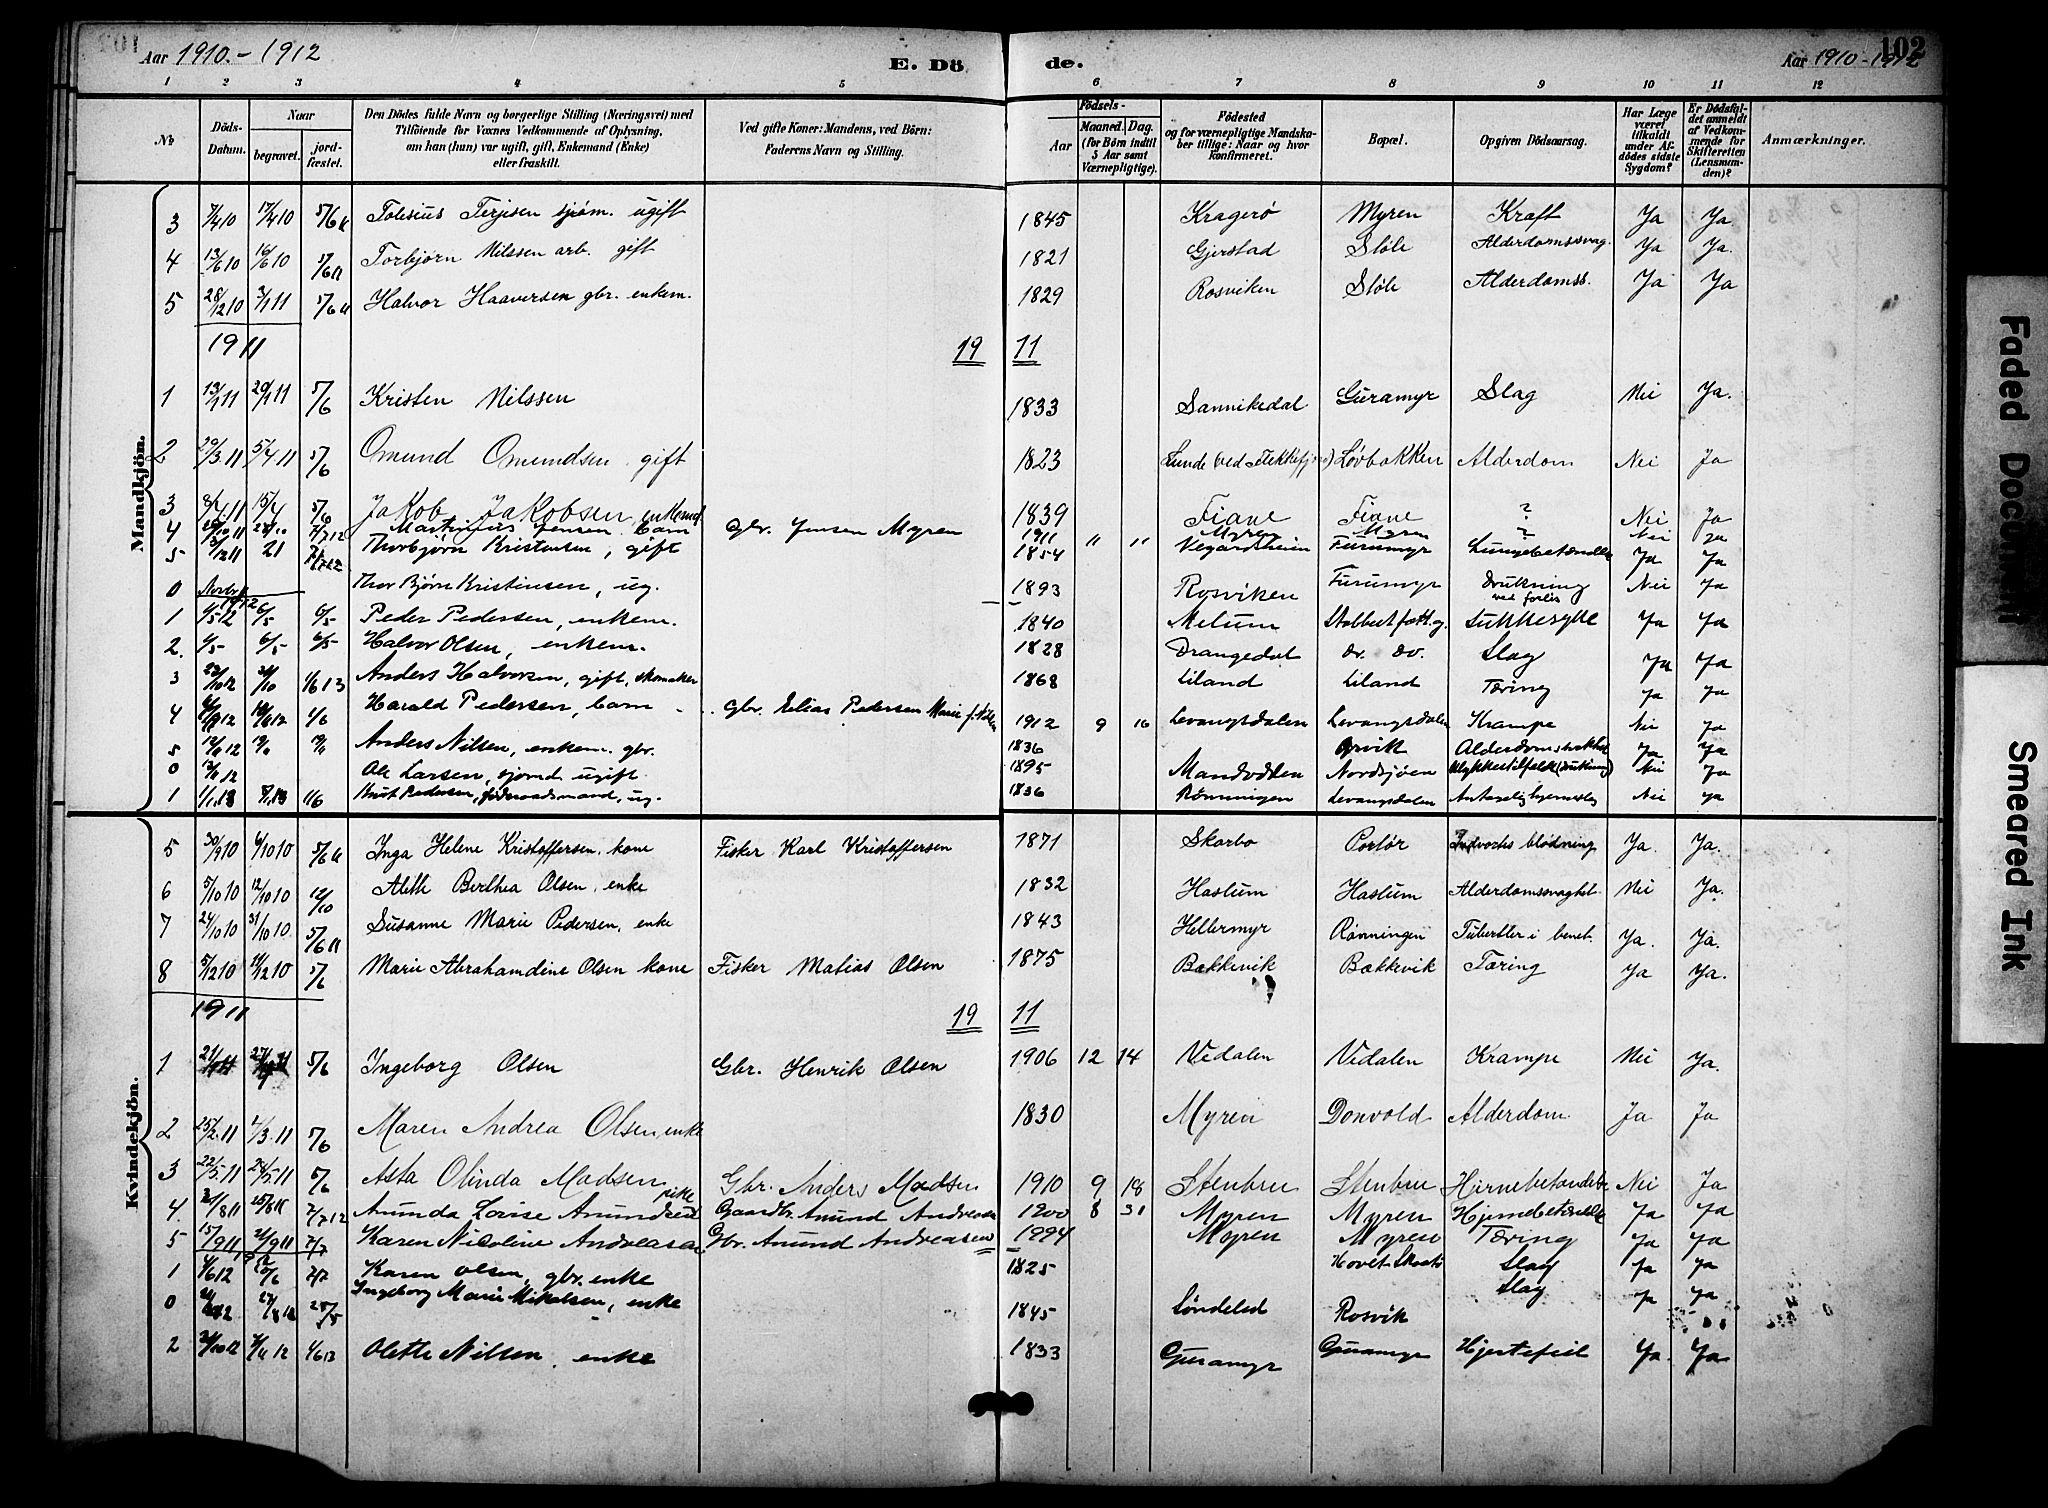 Aar 1910.- 1912
E. Dö
de.
Aar 1910-1912
102
1 2 3 4 5 6 7 8 9 10 11 12
No
Döds-Datum.
Naar
begravet.
jord-fæstet.
Den Dödes fulde Navn og borgerlige Stilling (Næringsvei) med
Tilföiende for Voxnes Vedkommende af Oplysning,
om han (hun) var ugift, gift, Enkemand (Enke)
eller fraskilt.
Ved gifte Koner: Mandens, ved Börn:
Faderens Navn og Stilling.
Födsels-
Aar
Maaned. Dag.
(for Börn indtil
5 Aar samt
Værnepligtige).
Födested
og for værnepligtige Mandska-
ber tillige: Naar og hvor
konfirmeret.
Bopæl.
Opgiven Dödsaarsag.
Har Læge
været
tilkaldt
under Af-
dödes sidste
Sygdom?
Er Dödsfal-
det anmeldt
af Vedkom-
mende for
Skifteretten
(Lensman-
den)?
Anmærkninger.
Mandkjön.
3 7/4 10 17/4 10 5/6 11 Tolesius Terjesen sjøm. ugift 1845 Kragerø Myren Kræft Ja Ja.
4 13/6 10 16/6 10 5/6 11 Torbjørn Nilssen arb. gift 1821 Gjerstad Støle Alderdomssvag. Ja Ja.
5 28/12 10 3/1 11 5/6 11 Halvor Haaversen gbr. enkem. 1829 Rosviken Støle Alderdomss. Ja Ja
1911 19 11
1 13/1 11 20/1 11 5/6 Kristen Nilssen 1833 Sannikedal Guramyr Slag Nei Ja.
2 29/3 11 5/4 11 5/6 Omund Omundsen gift 1823 Lunde (ved Flekkefjord) Løvbakken Alderdom Nei Ja
3 8/4 11 15/4 5/6 Jakob Jakobsen enkemd. 1839 Fiane Fiane ? Nei Ja
4 7/7 12 Martinius Jensen barn Gbr. Jensen Myren 1911 " " Myren Myren ? Nei Ja
5 12 11 21 7/7 12 Thorbjørn Kristensen, gift 1854 Vegardsheim Furumyr Lungebetændelse Ja Ja
0 Thor Bjørn Kristensen, ug. 1893 Rosviken Furumyr Drukning ved forlis Nei Ja
1912
1 1/5 12 6/5 6/5 Peder Pedersen, enkem. 1840 Melum Stabbestfatt.g. Sukkesyke Ja Ja
2. 1/5- 6/5 6/5 Halvor Olsen, enkem. 1828 Drangedal Do. Do. Slag Ja Ja
3 22/10 12 1/6 13 Anders Halvorsen, gift, skomaker 1868 Liland Liland Tæring Ja Ja
4 1/6 Harald Pedersen, barn Gbr. Elias Pedersen 1912 9 16 Levangsdalen Levangsdalen Krampe Nei Ja
5 12/11 12 19/11 19/11 Anders Nilsen, enkem. gbr. 1836 Ørvik Ja Ja
0 12 Ole Larsen, sjømd ugift. 1895 Mandodden Nordsjøen Ulykkestilfælde (Drukning) Nei Ja
1 1/1 13 8/1 13 1/6 Knut Pedersen, føderaadsmand, ug. 1836 Rønningen Levangsdalen Nei Ja
Kvindekjön.
5 30/9 10 6/10 10 5/6 11 Inga Helene Kristoffersen, kone Fisker Karl Kristoffersen 1871 Skarbo Portør Indvortes blødning Ja. Ja.
6 5/10 10 12/10 10 12/10 Alette Berthea Olsen, enke 1832 Haslum Haslum Alderdomssvaghet. Nei Ja.
7 24/10 10 31/10 10 5/6 11 Susanne Marie Pedersen, enke 1843 Hellermyr Rønningen Tuberkler i benet. Ja. Ja.
8 5/12 10 14/12 10 5/6 Marie Abrahamdine Olsen kone Fisker Matias Olsen 1875 Bækkevik Bækkevik Tæring Ja Ja.
1911 19 11
1 5/6 Ingeborg Olsen Gbr. Henrik Olsen 1906 12 14 Vedalen Vedalen Krampe Nei Ja.
2 25/2 11 4/3 11 5/6 Maren Andrea Olsen, enke 1830 Myren Donvold Alderdom Ja Ja
3 22/5 11 24/5 11 5/6 Asta Olinda Madsen pike Gbr. Anders Madsen 1910 9 18 Stenbru Stenbru Hirnebetændelse Nei Ja
4. 21/8 11 25/8 11 7/7 12 Anunda Lovise Anundsen Gaardbr. Anund Andreasen 1900 8 31 Myren Myren Hjernebetændelse Ja Ja
5 15/9 11 21/9 11 7/7 Karen Nicoline Andreasen Gbr. Anund Andreasen 1994 Myren Myren Tæring Ja Ja
1 4/6 12 10/6 7/7 Karen Olsen, gbr. enke 1825 Slag Ja Ja
0 Ingeborg Marie Mikalsen, enke 1845 Søndeled Rosvik Slag Ja Ja
2 1/6 13 Olette Nilsen, enke 1833 Guramyr Guramyr Hjertefeil Ja Ja
Faded Document
Smeared Ink